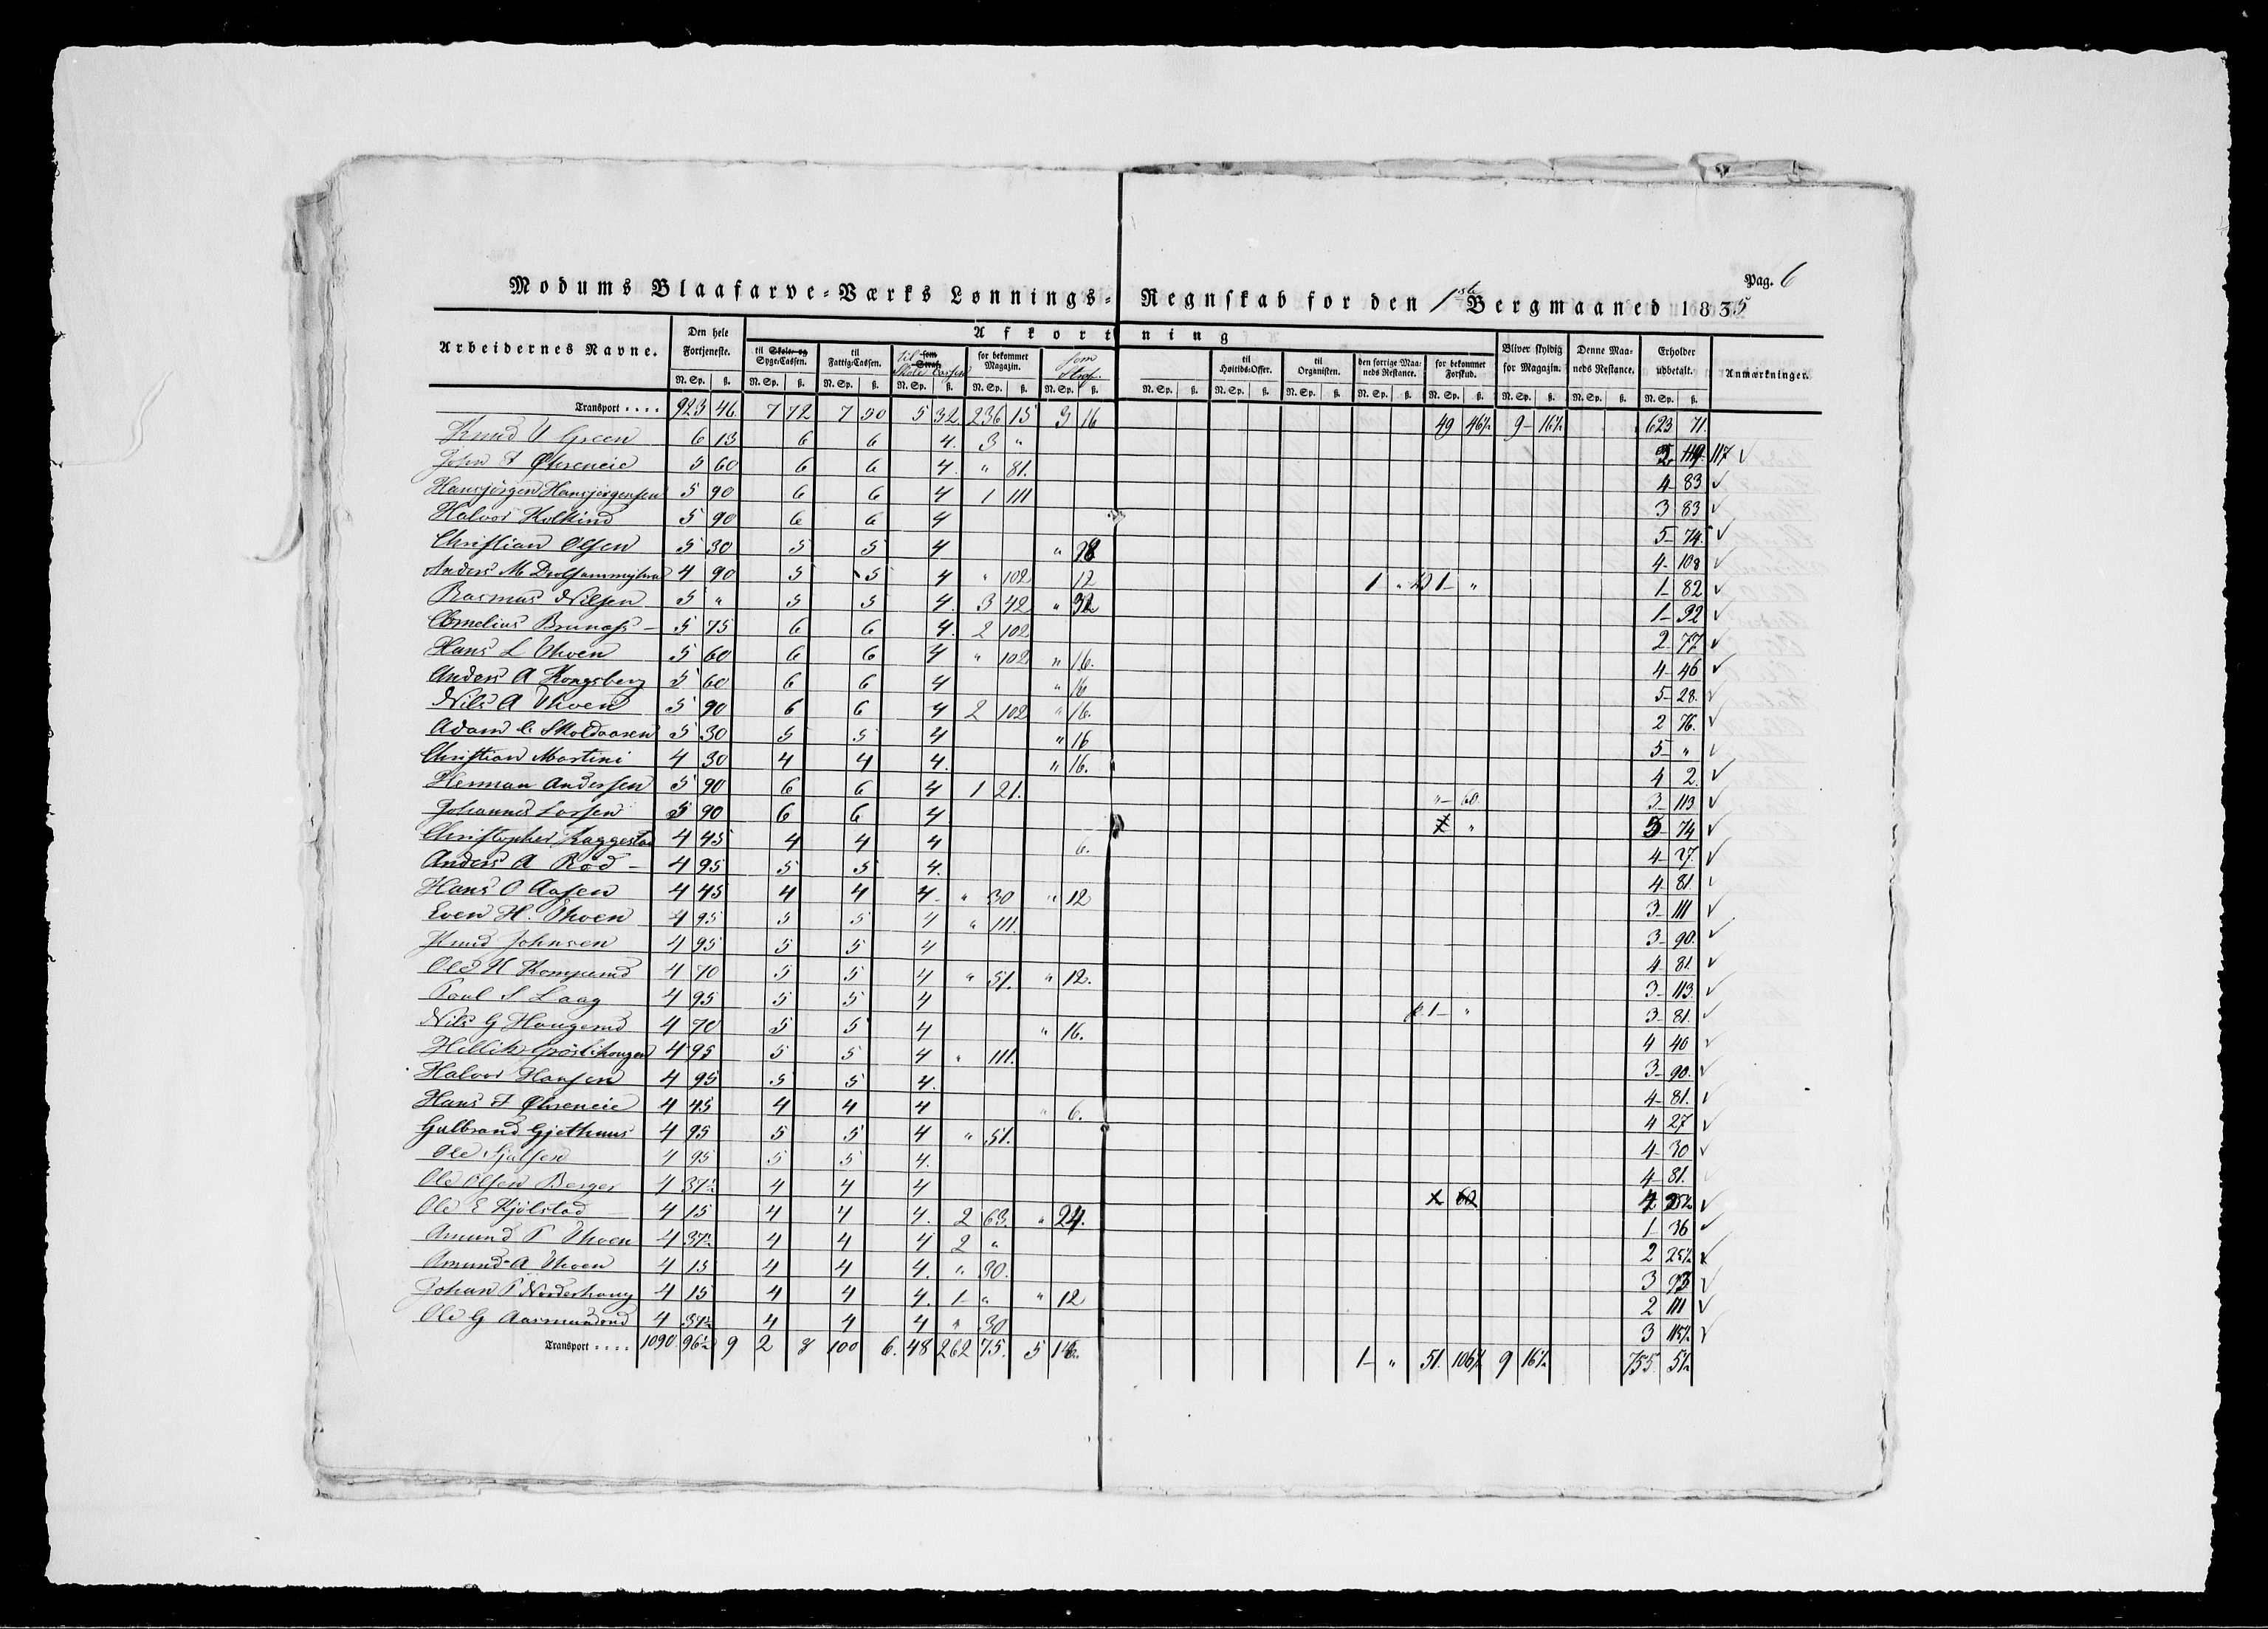 Pag. 6
Modums Blaafarve-Værks Lønnings- Regnskab for den 1ste Bergmaaned 1835
Arbeidernes Navne. Den hele Fortjeneste. Afkortning Bliver skyldig for Magazin. Denne Maaneds Restance. Erholder udbetalt. Anmærkninger.
til Skole- og Syge-Cassen. til Fattig-Cassen. til som Straf Skole Cassen for bekommet Magazin. som Straf. til Høitids-Offer. til Organisten. den forrige Maaneds Restance. for bekommet Forskud.
N. Sp. ß. N. Sp. ß. N. Sp. ß. N. Sp. ß. N. Sp. ß. N. Sp. ß. N. Sp. ß. N. Sp. ß. N. Sp. ß. N. Sp. ß. N. Sp. ß. N. Sp. ß. N. Sp. ß. N. Sp. ß.
Transport .... 923 46 7 72 7 50 5 32. 236 15 3 16 49 46½ 9- 16½ 623 71.
Knud Green 6 13 6 6 4. 3 " 2 117 ✓
John F Øhreneie 5 60 6 6 4. " 81. 4- 83 ✓
Hansjørgen Hansjørgensen 5 90 6 6 4 1 111 3 83 ✓
Halvor Kolkind 5 90 6 6 4 5- 74. ✓
Christian Olsen 5 30 5 5 4 " 4- 108 ✓
Anders M 4 90 5 5 4 " 102 12 1 " 1- " 1- 82 ✓
Rasmus Nilsen 5 " 5 5 4. 3 42 " 32 1- 92 ✓
Cornelius Brunass - 5 75 6 6 4. 2 102 2- 77 ✓
Hans L Thoen 5 60 6 6 4 " 102 " 16. 4- 46 ✓
Anders A Kongsberg 5 60 6 6 4 " 16 5- 28. ✓
Nils A Thoen 5 90 6 6 4 2 102 " 16. 2 76. ✓
Adam C Skoldaasen 5 30 5 5 4 " 16 5- " ✓
Christian Martini 4 30 4 4 4. " 16. 4 2. ✓
Herman Andersen 5 90 6 6 4 1 21. "- 60. 3- 113 ✓
Johannes Larsen 5 90 6 6 4 " 5- 74 ✓
Christopher Kaggestad 4 45 4 4 4 6. 4- 27. ✓
Anders A Rød - 4 95 5 5 4. 4- 81. ✓
Hans O Aasen 4 45 4 4 4- " 30 " 12 3- 111 ✓
Even H. Thoen 4 95 5 5 4 " 111. 3- 90. ✓
Knud Johnsen 4 95 5 5 4 4- 81. ✓
Ole H Komperud 4 70 5 5 4 " 51. " 12. 3- 113. ✓
Paul S Laag 4 95 5 5 4 1- " 3- 81. ✓
Nils G Haugerud 4 70 5 5 4 " 16. 4 40 ✓
Hellik Grøslihaugen 4 95 5 5 4 " 111. 3- 90. ✓
Halvor Hansen 4 95 5 5 4. 4- 81. ✓
Hans F Øhreneie 4 45 4 4 4 " 6. 4 27 ✓
Gulbrand Gjethuus 4 95 5 5 4 " 51. 4- 30 ✓
Ole Sjulsen 4 95 5 5 4. 4- 81. ✓
Ole Olsen Berger 4 37½ 4 4 4 4 25½ ✓
Ole E Kjølstad 4 15 4 4 4. 2 63. " 24. 1- 36 ✓
Amund P Thoen 4 37½ 4 4 4 2 " 2 25½ ✓
Amund A Thoen 4 15 4 4 4. " 30. 3 93 ✓
Johan P Norderhaug 4 15 4 4 4. 1- " " 12 2 111 ✓
Ole G Aasmundrud 4 37½ 4 4 4 " 30 3 115½ ✓
Transport .... 1090. 96½ 9 2 8 100 6. 48 262 75. 5 1- " 51. 106½ 9 16½ 755 5½